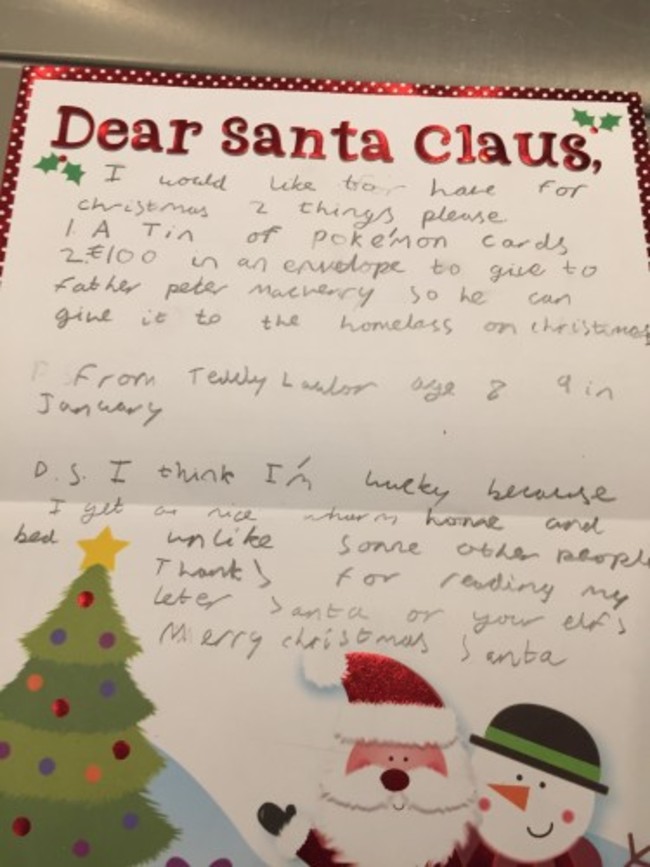 Dear Santa Claus,
I would like to have for
christmas 2 things please
1. A Tin of pokémon cards
2. €100 in an envelope to give to
Father peter macverry so he can
give it to the homelass on christmas
From Teddy Lawlor age 8 9 in
January
D.S. I think I'm lucky because
I get a nice wharm home and
bed unlike some other people
Thanks for reading my
leter santa or your elfs
Merry christmas Santa